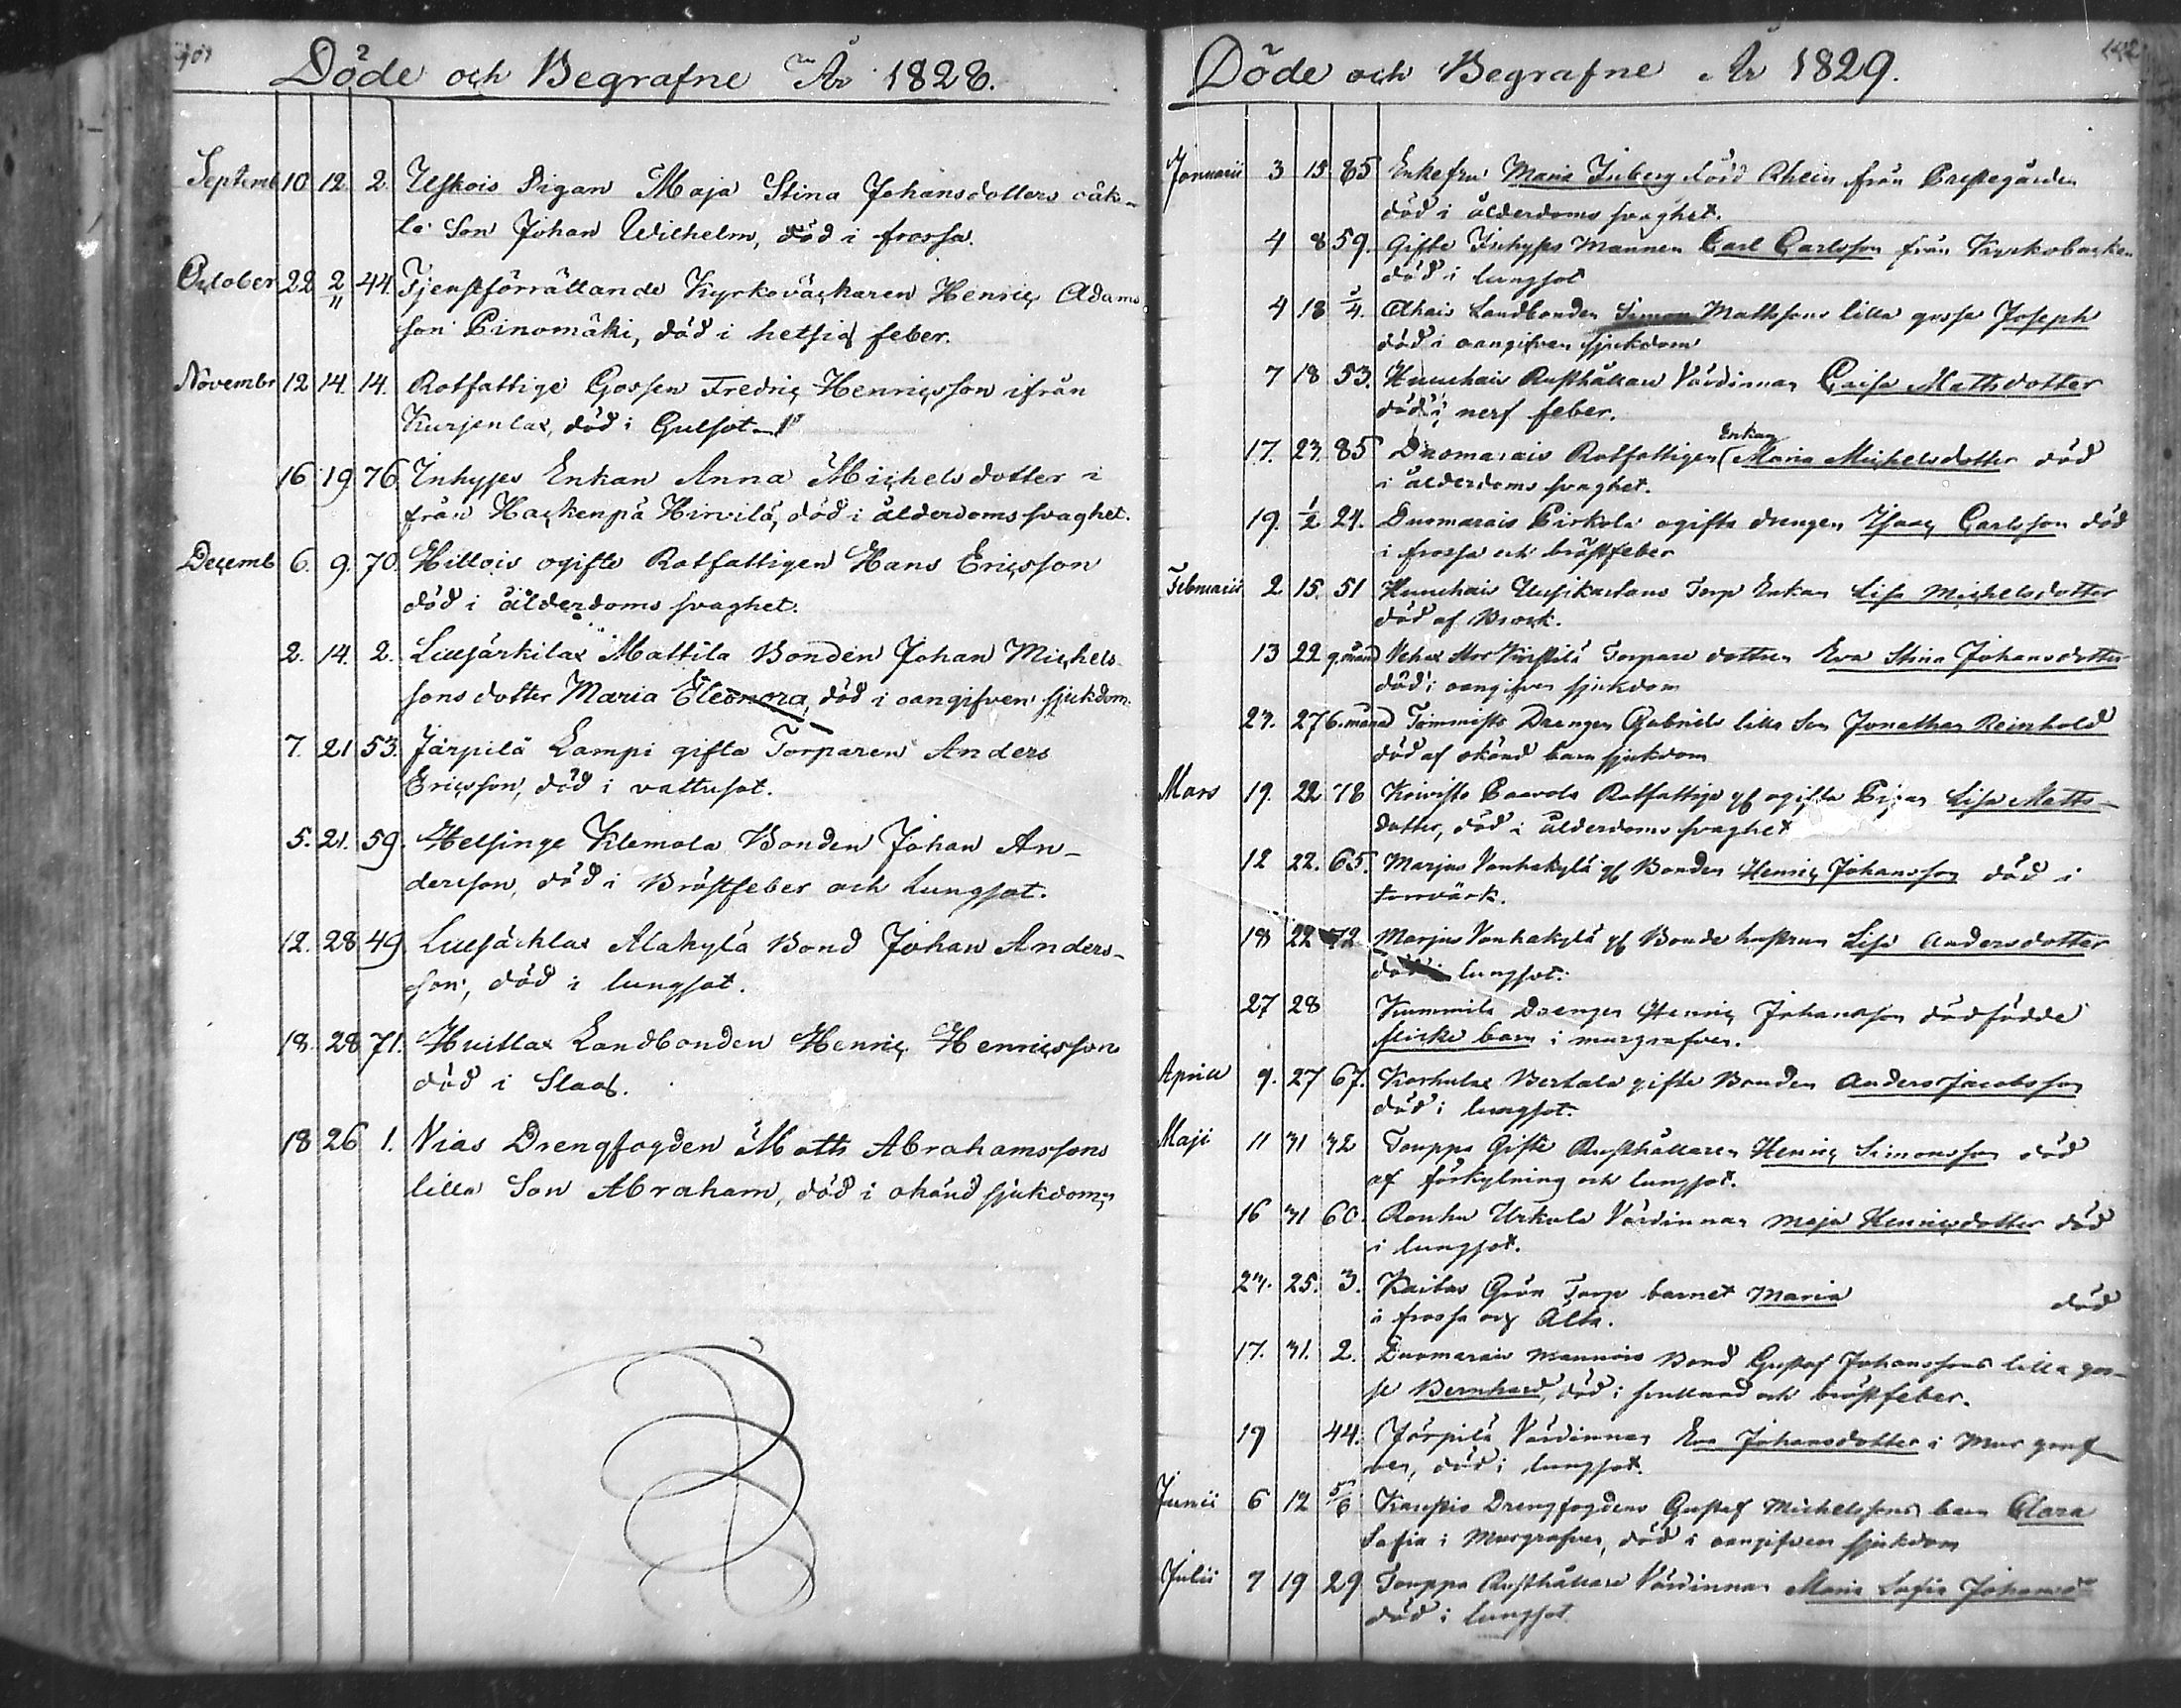 Döde och Begrafne År 1828.
Septemb 10 12 2 Uskois Pigan Maja Stina Johansdotters oäk-
ta Son Johan Wilhelm, död i frossa.
October 22 2/11 44. Tjenstförrättande Kyrkoväckaren Henric Adams
son Pinomäki, död i hetsig feber.
Novembr 12 14. 14. Rotfattige Gossen Fredric Henricsson ifrån
Kurjenlax, död i Gulsot.
16 19 76. Inhyses Enkan Anna Michelsdotter i
från Hackenpä Hirvilä, död i ålderdoms svaghet.
Decemb 6. 9. 70. Hillois ogifte Rotfattigen Hans Ericsson
död i ålderdoms svaghet.
2. 14. 2. Liesjärkilax Mattila Bonden Johan Michels
sons dotter Maria Eleonora, död i oangifven sjukdom.
7. 21 53. Järpilä Lampi gifta Torparen Anders
Ericsson, död i vattusot.
5. 21. 59. Helsinge Klemola Bonden Johan An-
dersson, död i Bröstfeber och Lungsot.
12. 28 49. Alakylä Bond Johan Anders-
son, död i lungsot.
18. 28 71. Huitlax Landbonden Henric Henricsson
död i Slag.
18 26 1. Nias Drengfogden Matts Abrahamssons
lilla Son Abraham, död i okänd sjukdom
Döde och Begrafne År 1829.
142
Januarii 3 15 85 Enkefru Maria Inberg född Rhein från Prestegården
död i ålderdoms svaghet.
4 8 59. Gifte Inhyses Mannen Carl Carlsson från Kyrkobacken
död i lungsot
4 18 3/4. Ahais Landbonden Simon Mattssons lilla gosse Joseph
död i oangifven sjukdom
7 18 53. Rusthållare Värdinnan Caisa Mattsdotter
död i nerf feber.
17. 23. 85 Duomarais Rotfattigen Enkan Maria Michelsdotter död
i ålderdoms svaghet.
19. 1/2 24. Duomarais Pirkola ogifta drengen Isaac Carlsson död
i frossa och bröstfeber
Februarii 2 15. 51 Uusikartano Torp Enkan Lisa Michelsdotter
död af Brock.
13 22 9 mån Vehax Torpare dotter Eva Stina Johansdotter
död i oangifven sjukdom
23. 27 6. månad Tommisto Drengen Gabriels lilla Son Jonathan Reinhold
död af okänd barnsjukdom
Mars 19. 22 78 Koivisto Paavola Rotfattige gf ogifta Pigan Lisa Matts-
dotter, död i ålderdoms svaghet
12 22. 65. Marjus Vanhakylä gf Bonden Henric Johansson död i
torrvärk.
18 22 72 Marjus Vanhakylä gf Bonde hustrun Lisa Andersdotter
död i lungsot.
27 28 Kummila Drengen Henric Johansson dödfödde
flicke barn i murgrafven.
Aprill 9. 27 67. Karhulax Bertala gifte Bonden Anders Jacobsson
död i lungsot.
Maji 11 31 32 Touppa Gifte Rusthållaren Henric Simonsson död
af förkylning och lungsot.
16 31 60. Ronhu Urkola Värdinnan Maja Henricsdotter död
i lungsot.
24. 25. 3. Kaitas Grön Torp barnet Maria död
i frossa och Älta.
17. 31. 2. Duomarais Mannois Bond Gustaf Johanssons lilla gos-
se Bernhard, död i svullnad och bröstfeber.
19 44. Järpilä Värdinnan Eva Johansdotter i Mur graf
ven, död i lungsot.
Junii 6 12 5/6 Karuspio Drengfogdens Gustaf Michelssons barn Clara
Sofia i Murgrafven, död i oangifven sjukdom
Julii 7 19 29 Touppa Rusthållare Värdinnan Maria Sofia Johans
död i lungsot